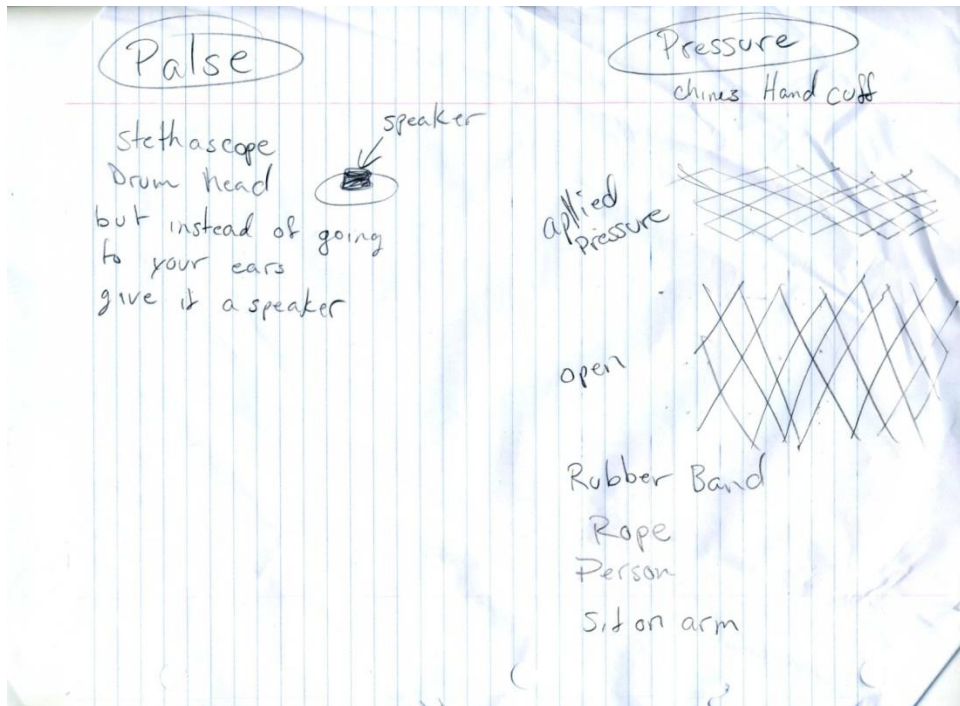 Palse
stethascope
Drum head
but instead of going
to your ears
give it a speaker
speaker
Pressure
chines Hand cuff
apllied
pressure
open
Rubber Band
Rope
Person
Sit on arm